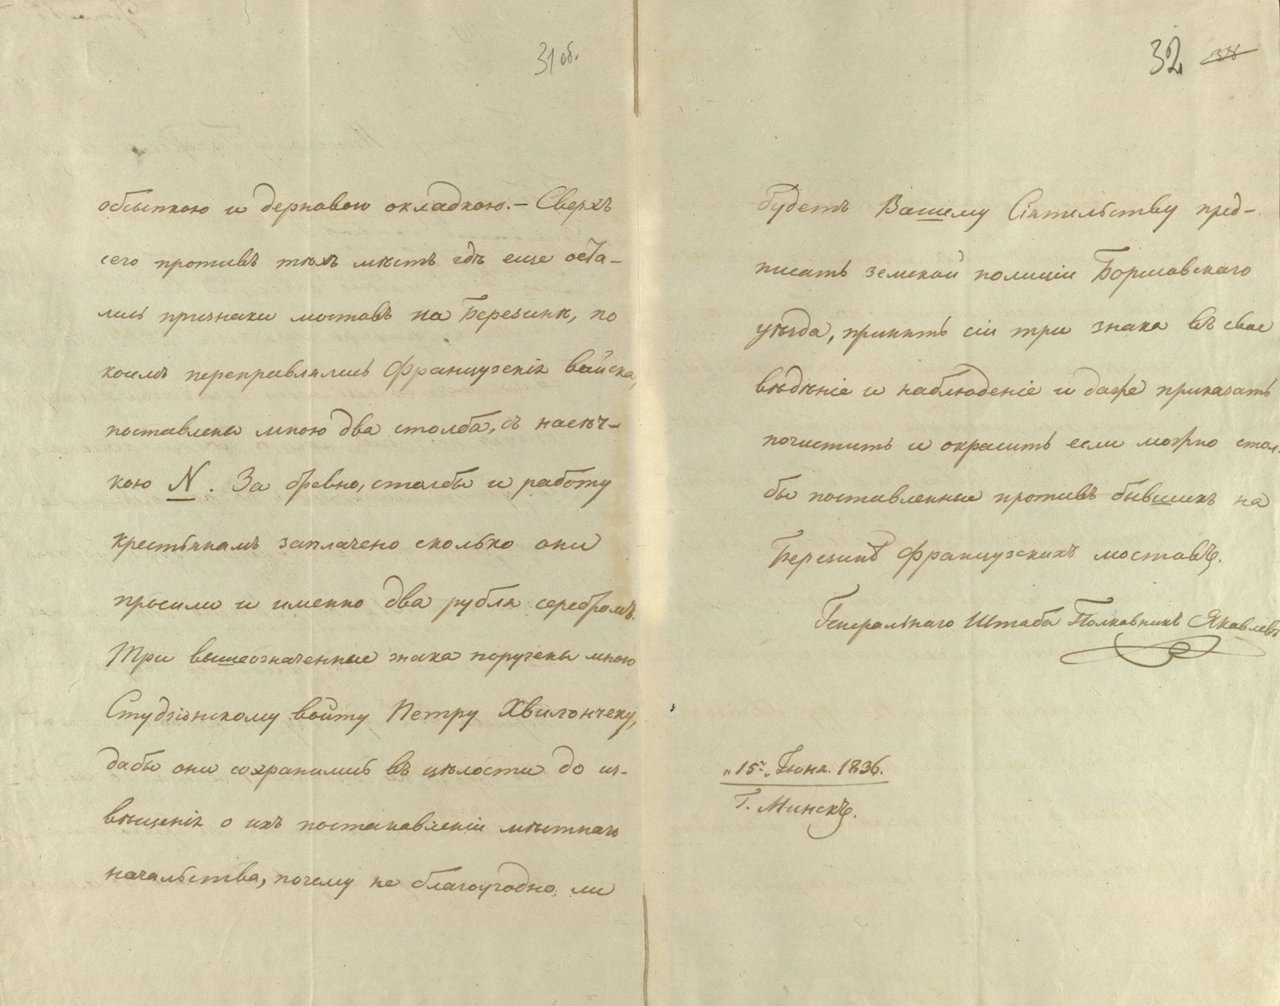 31 об.
обсыпкою и дерновою окладкою. – Сверхъ
сего противъ тѣхъ мѣстъ гдѣ еще оста-
лись признаки мостовъ на Березинѣ, по
коимъ переправлялись Французскія войска,
поставлены мною два столба, съ насѣч-
кою N. За бревно, столбы и работу
крестьянамъ заплачено сколько они
просили и именно два рубля серебромъ.
Три вышеозначенные знака поручены мною
Студзіонскому войту Петру Хвилончеку,
дабы они сохранились въ цѣлости до из-
вѣщенія о ихъ постановленіи мѣстнаго
начальства, почему не благоугодно ли
32
будетъ Вашему Сіятельству пред-
писать земской полиціи Борисовскаго
уѣзда, принять сіи три знака въ свое
вѣдѣніе и наблюденіе и даже приказать
почистить и окрасить если можно стол-
бы поставленные противъ бывшихъ на
Березинѣ Французскихъ мостовъ.
Генеральнаго Штаба Полковникъ Яковлевъ
„15.„ Іюня. 1836.
Г. Минскъ.